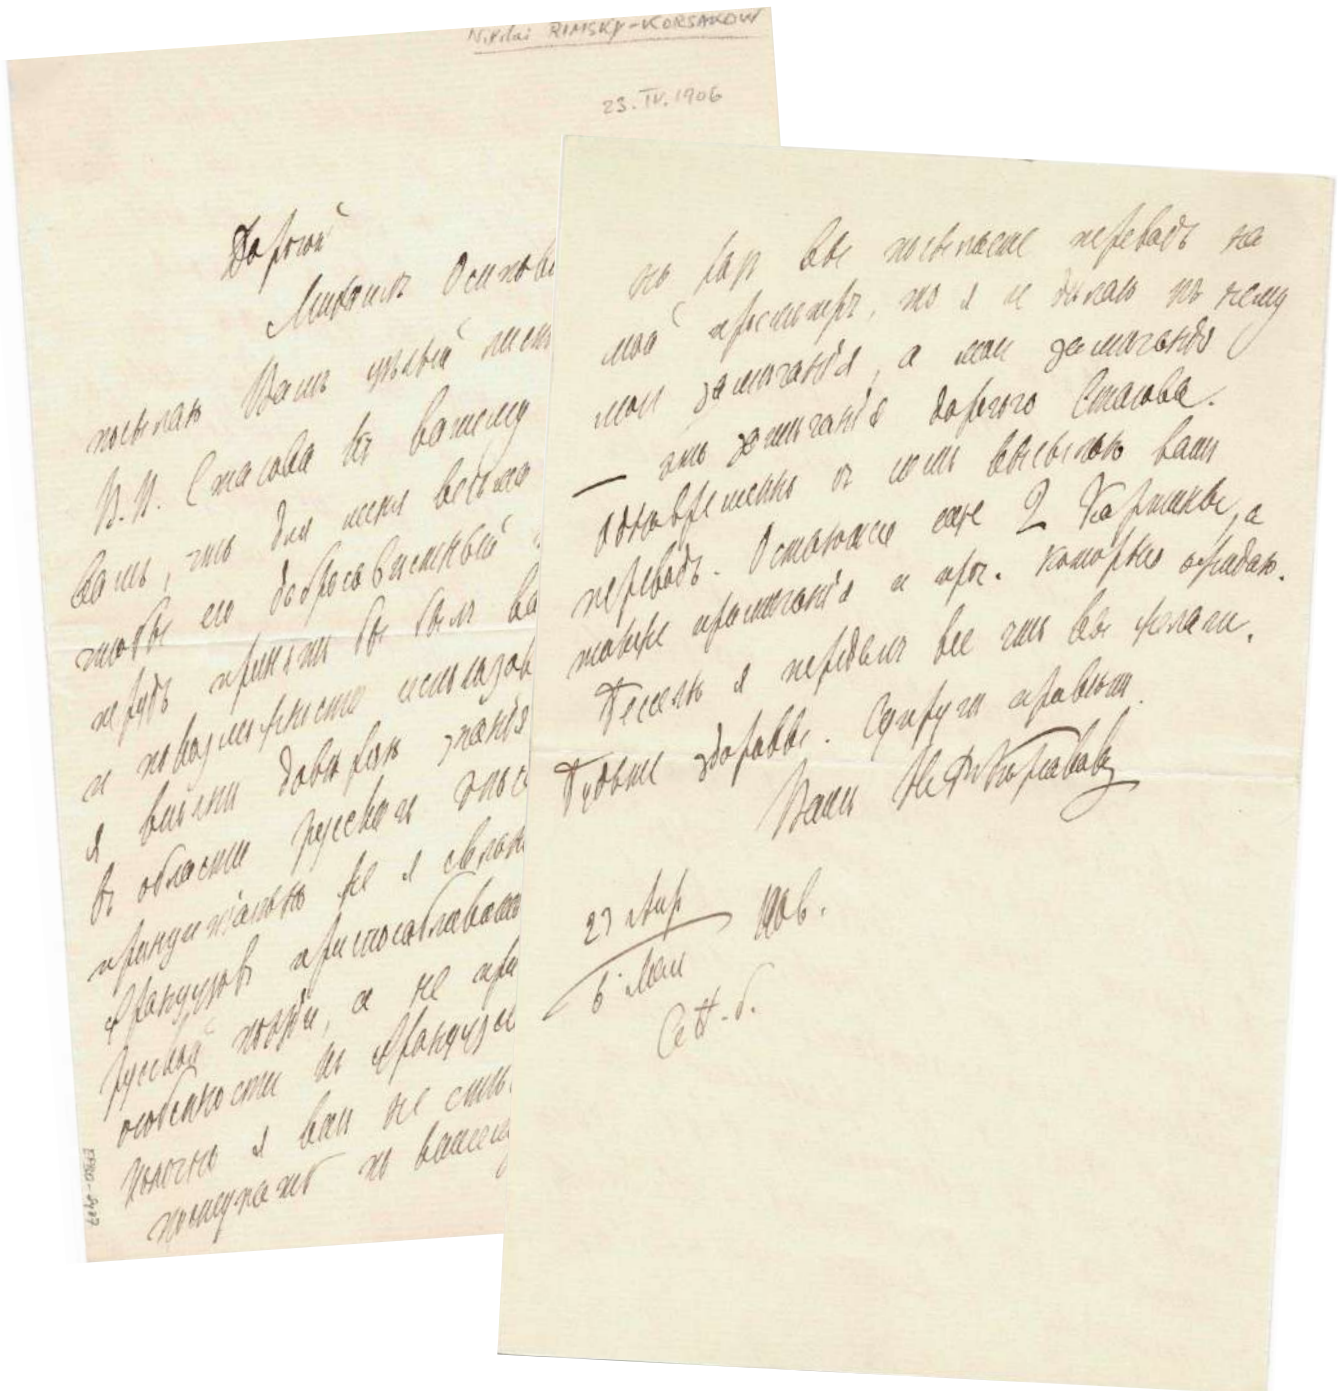 Nikolai RIMSKY-KORSAKOW
23.IV.1906
Дорогой
Михаилъ Осипови
посылаю Вамъ цѣлый
В.В. Стасова къ вашему
Вамъ, что для меня весьма
чтобы его добросовѣстный
трудъ принятъ бы былъ ва
и по возможности использов
я вполнѣ довѣряю знанія
въ области русскаго
принципіально же я
французовъ приспособливать
русской, а не при
особенности къ французск
Конечно я вамъ не
поступать по вашему
но разъ вы посылаете переводъ на
мой просмотръ, то я и дѣлаю къ нему
мои замѣчанія, а мои замѣчанія
— это замѣчанія дорогого Стасова.
Одновременно съ симъ высылаю вамъ
переводъ. Остаются еще 2 картины, а
также примѣчанія и проч. которыхъ ожидаю.
Бесселю я передалъ все что вы желали.
Будьте здоровы. Супруги привѣтъ.
Вашъ Н. Р. Корсаковъ
23 Апр
6 Мая
1906.
С.П.б.